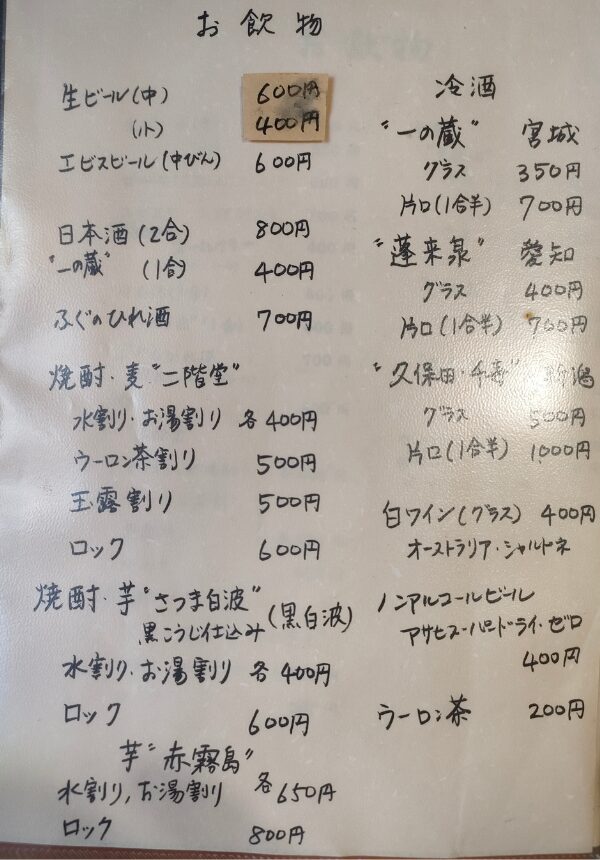 お飲物
生ビール(中) 600円
(小) 400円
エビスビール(中びん) 600円
日本酒(2合) 800円
"一の蔵" (1合) 400円
ふぐのひれ酒 700円
焼酎・麦"二階堂"
水割り・お湯割り 各400円
ウーロン茶割り 500円
玉露割り 500円
ロック 600円
焼酎・芋"さつま白波"
黒こうじ仕込み (黒白波)
水割り・お湯割り 各400円
ロック 600円
芋"赤霧島"
水割り,お湯割り 各650円
ロック 800円
冷酒
"一の蔵" 宮城
グラス 350円
片口(1合半) 700円
"蓬来泉" 愛知
グラス 400円
片口(1合半) 700円
"久保田・千寿" 新潟
グラス 500円
片口(1合半) 1000円
白ワイン(グラス) 400円
オーストラリア・シャルドネ
ノンアルコールビール
アサヒスーパードライ・ゼロ
400円
ウーロン茶 200円